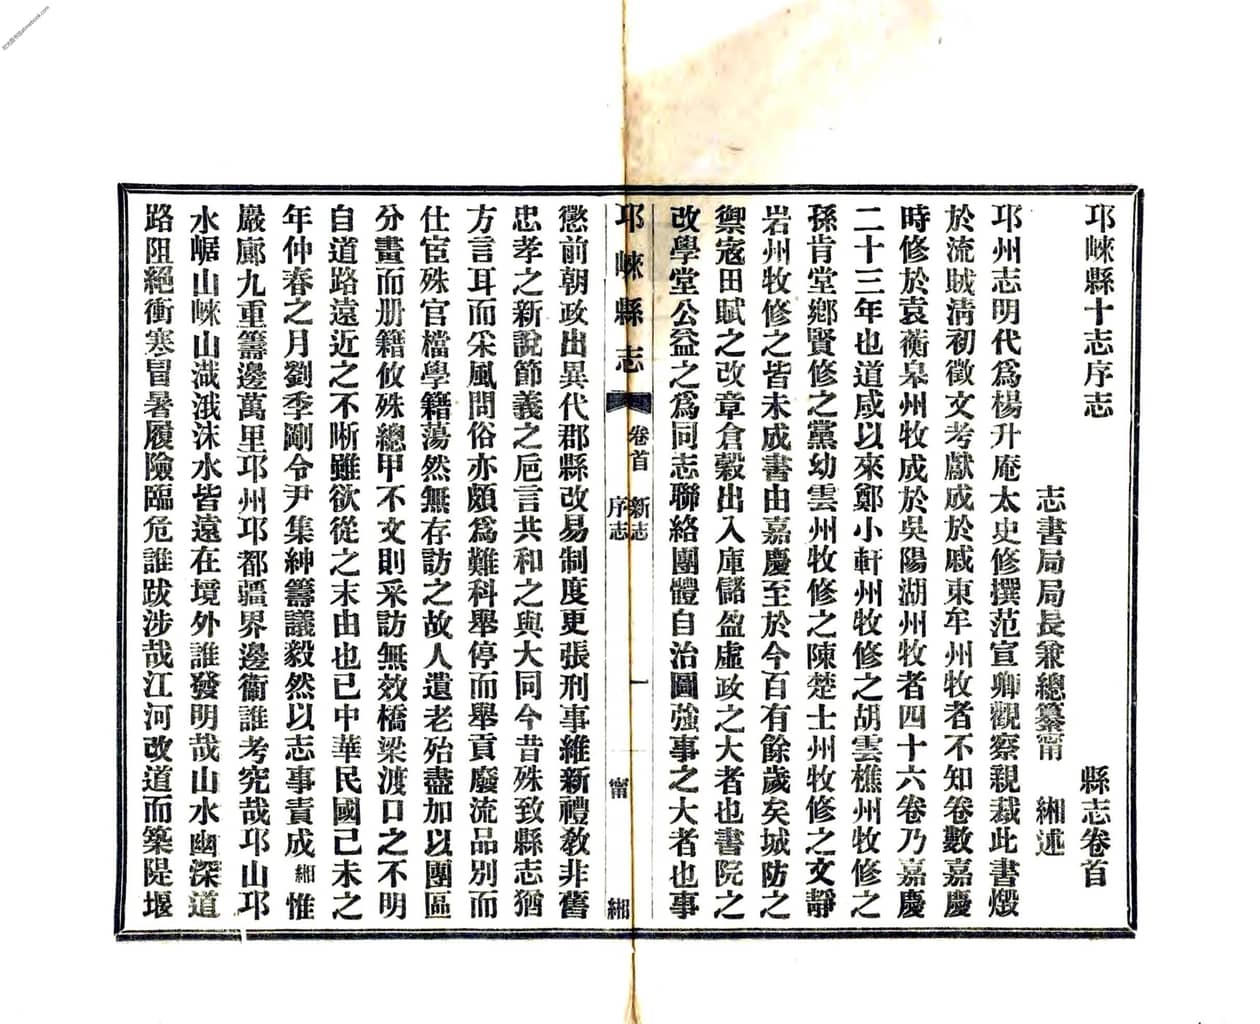 邛崍縣十志序志　縣志卷首
志書局局長兼總纂甯　緗述
邛州志明代爲楊升庵太史修撰范宣卿觀察親裁此書燬
於流賊淸初徵文考獻成於戚東牟州牧者不知卷數嘉慶
時修於袁蘅皋州牧成於吳陽湖州牧者四十六卷乃嘉慶
二十三年也道咸以來鄭小軒州牧修之胡雲樵州牧修之
孫肯堂鄉賢修之黨幼雲州牧修之陳楚士州牧修之文靜
岩州牧修之皆未成書由嘉慶至於今百有餘歲矣城防之
禦寇田賦之改章倉穀出入庫儲盈虛政之大者也書院之
改學堂公益之爲同志聯絡團體自治圖強事之大者也事
邛崍縣志　卷首　新志序志　一　甯　緗
懲前朝政出異代郡縣改易制度更張刑事維新禮敎非舊
忠孝之新說節義之卮言共和之與大同今昔殊致縣志猶
方言耳而采風問俗亦頗爲難科舉停而舉貢廢流品別而
仕宦殊官檔學籍蕩然無存訪之故人遺老殆盡加以團區
分畫而册籍攸殊總甲不文則采訪無效橋梁渡口之不明
自道路遠近之不晰雖欲從之末由也已中華民國己未之
年仲春之月劉季剛令尹集紳籌議毅然以志事責成緗惟
巖廊九重籌邊萬里邛州邛都疆界邊衞誰考究哉邛山邛
水崌山崍山濈涐沫水皆遠在境外誰發明哉山水幽深道
路阻絕衝寒冒暑履險臨危誰跋涉哉江河改道而築隄堰